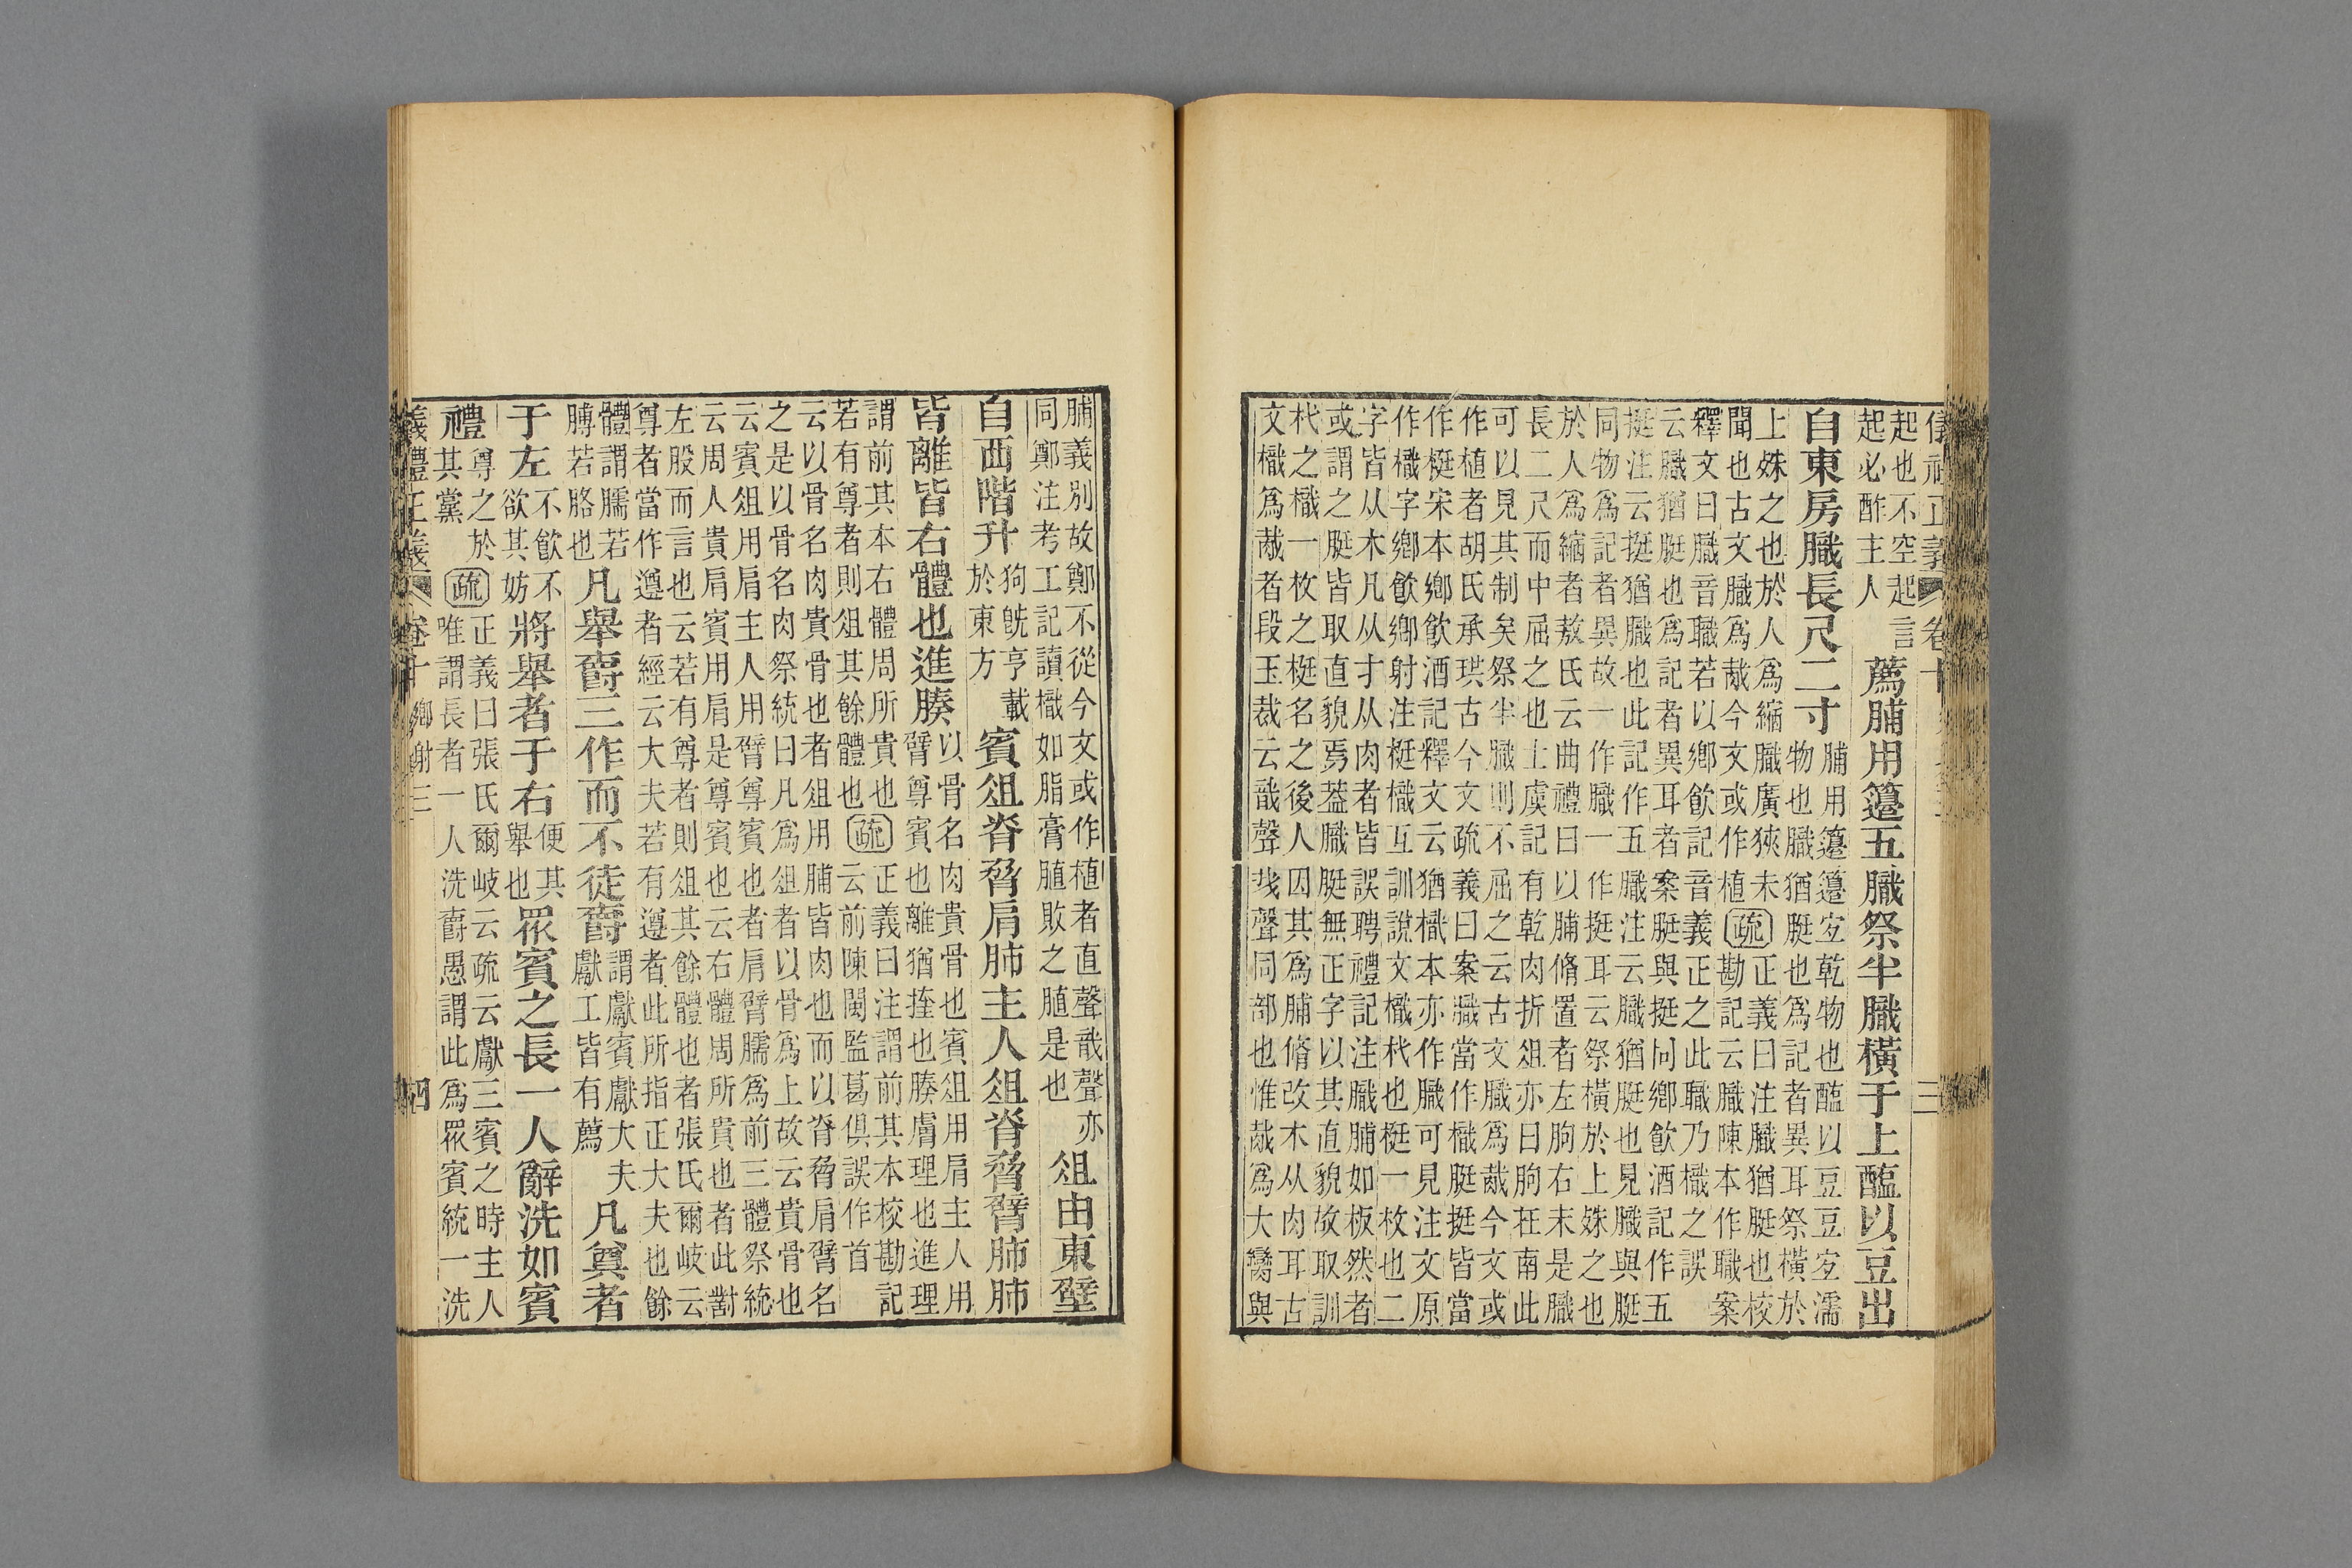 起也不空起言
起必酢主人
薦脯用籩五膱祭半膱橫于上醢以豆出
自東房膱長尺二寸
脯用籩籩宐乾物也醢以豆豆宐濡
物也膱猶脡也爲記者異耳祭橫於
上殊之也於人爲縮膱廣狹未聞也古文膱爲胾今文或作植
疏
正義曰注膱猶脡也校
勘記云膱陳本作職案
釋文曰膱音職若以鄉飲記音義正之此職乃樴之誤
云膱猶脡也爲記者異耳者案脡與挺同鄉飲酒記作五
挺注云挺猶膱也此記作五膱注云膱猶脡也見膱與脡
同物爲記者異故一作膱一作挺耳云祭橫於上殊之也
於人爲縮者敖氏云曲禮曰以脯脩置者左朐右末是膱
長二尺而中屈之也士虞記有乾肉折俎亦曰朐在南此
可以見其制矣祭半膱則不屈之云古文膱爲胾今文或
作植者胡氏承珙古今文疏義曰案膱當作樴脡挺皆當
作梃宋本鄉飲酒記釋文云猶樴本亦作膱可見注文原
作樴字鄉飲鄉射注梃樴互訓說文樴杙也梃一枚也二
字皆从木凡从才从肉者皆誤聘禮記注膱脯如板然者
或謂之脡皆取直貌焉葢膱脡無正字以其直貌故取訓
杙之樴一枚之梃名之後人因其爲脯脩改木从肉耳古
文樴爲胾者段玉裁云戠聲𢦏聲同部也惟胾爲大臠與
脯義別故鄭不從今文或作植者直聲戠聲亦
同鄭注考工記讀樴如脂膏䐈敗之䐈是也
俎由東壁
自西階升
狗旣亨載
於東方
賓俎脊脅肩肺主人俎脊脅臂肺肺
皆離皆右體也進腠
以骨名肉貴骨也賓俎用肩主人用
臂尊賓也離猶㨖也腠膚理也進理
謂前其本右體周所貴也
若有尊者則俎其餘體也
疏
正義曰注謂前其本校勘記
云前陳閩監葛俱誤作首
云以骨名肉貴骨也者俎用脯皆肉也而以脊脅肩臂名
之是以骨名肉祭統曰凡爲俎者以骨爲上故云貴骨也
云賓俎用肩主人用臂尊賓也者肩臂臑爲前三體祭統
云周人貴肩賓用肩是尊賓也云右體周所貴也者此對
左股而言也云若有尊者則俎其餘體也者張氏爾岐云
尊者當作遵者經云大夫若有遵者此所指正大夫也餘
體謂臑若
膊若胳也
凡舉爵三作而不徒爵
謂獻賓獻大夫
獻工皆有薦
凡奠者
于左
不飲不
欲其妨
將舉者于右
便其
舉也
眾賓之長一人辭洗如賓
禮
尊之於
其黨
疏
正義曰張氏爾岐云疏云獻三賓之時主人
唯謂長者一人洗爵愚謂此爲眾賓統一洗